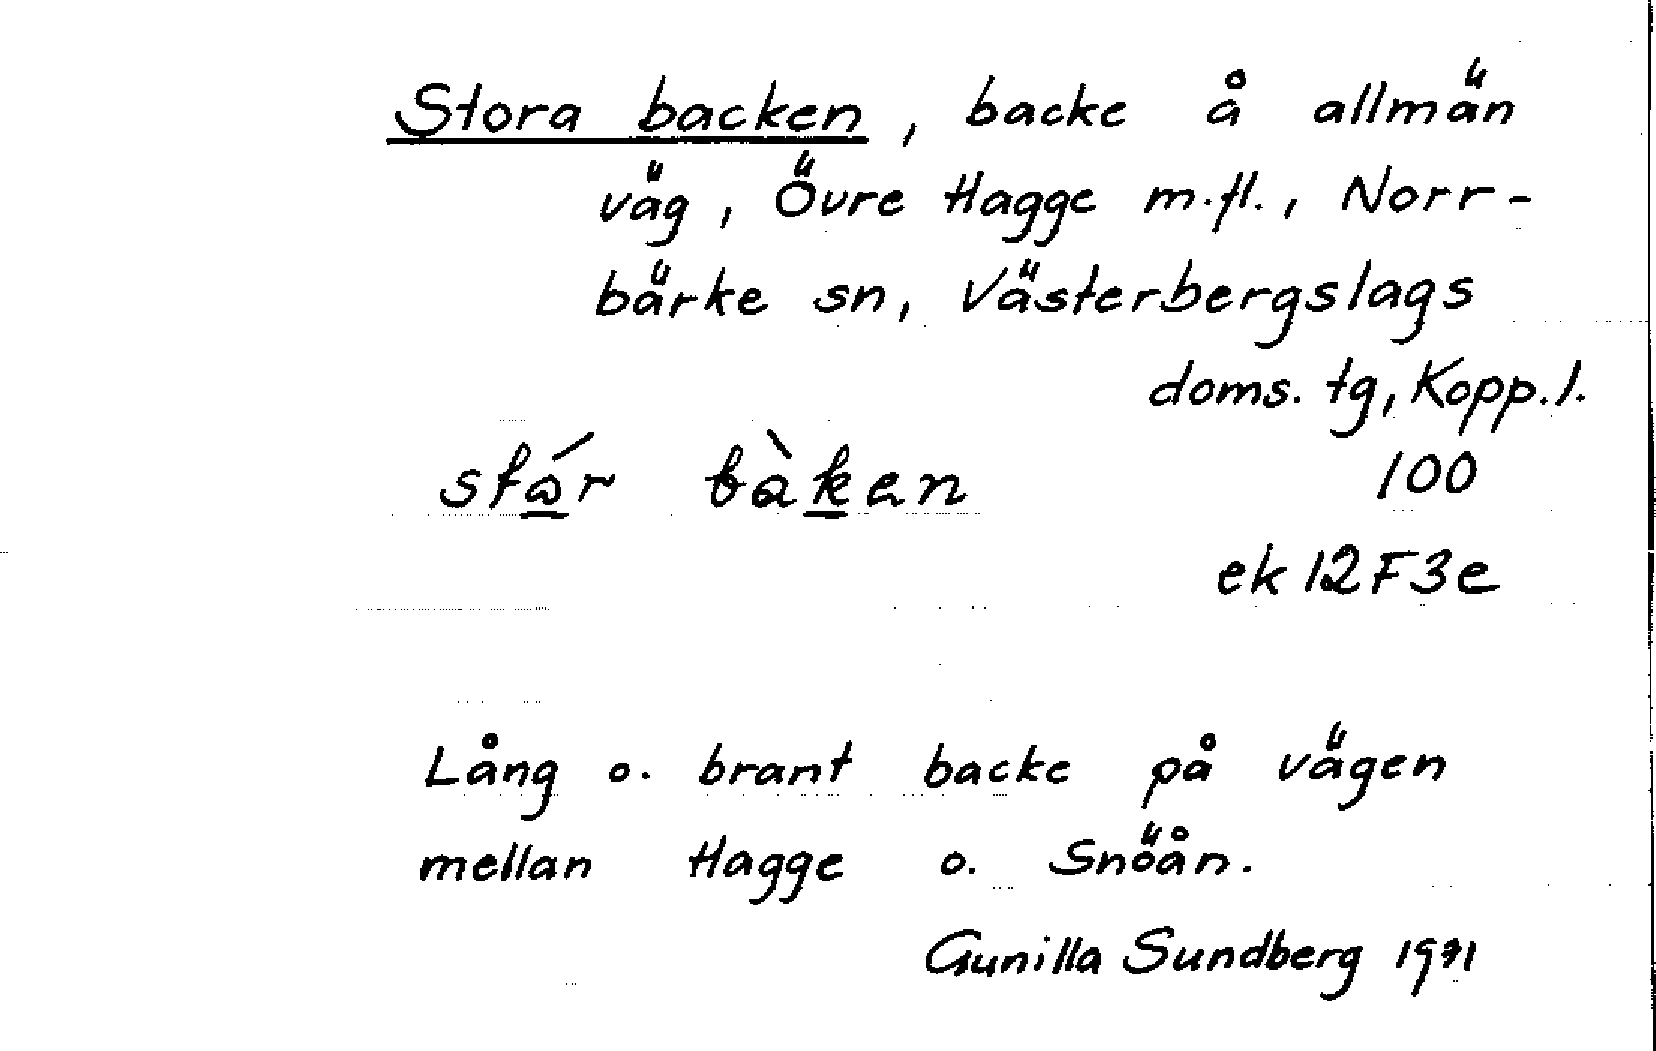 Stora backen, backe å allmän
väg, Övre Hagge m.fl., Norr-
bärke sn, Västerbergslags
doms. tg, Kopp.l.
står bàken 100
ek 12F3e
Lång o. brant backe på vägen
mellan Hagge o. Snöån.
Gunilla Sundberg 1971